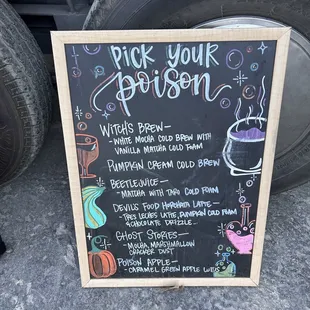 PICK YOUR
poison
WITCH'S BREW—
- WHITE MOCHA COLD BREW WITH
VANILLA MATCHA COLD FOAM
PUMPKIN CREAM COLD BREW
BEETLEJUICE—
- MATCHA WITH TARO COLD FOAM
DEVILS FOOD HORCHATA LATTE—
- TRES LECHES LATTE, PUMPKIN COLD FOAM
& CHOCOLATE DRIZZLE
GHOST STORIES—
- MOCHA, MARSHMALLOW
CRACKER DUST
POISON APPLE—
- CARAMEL GREEN APPLE